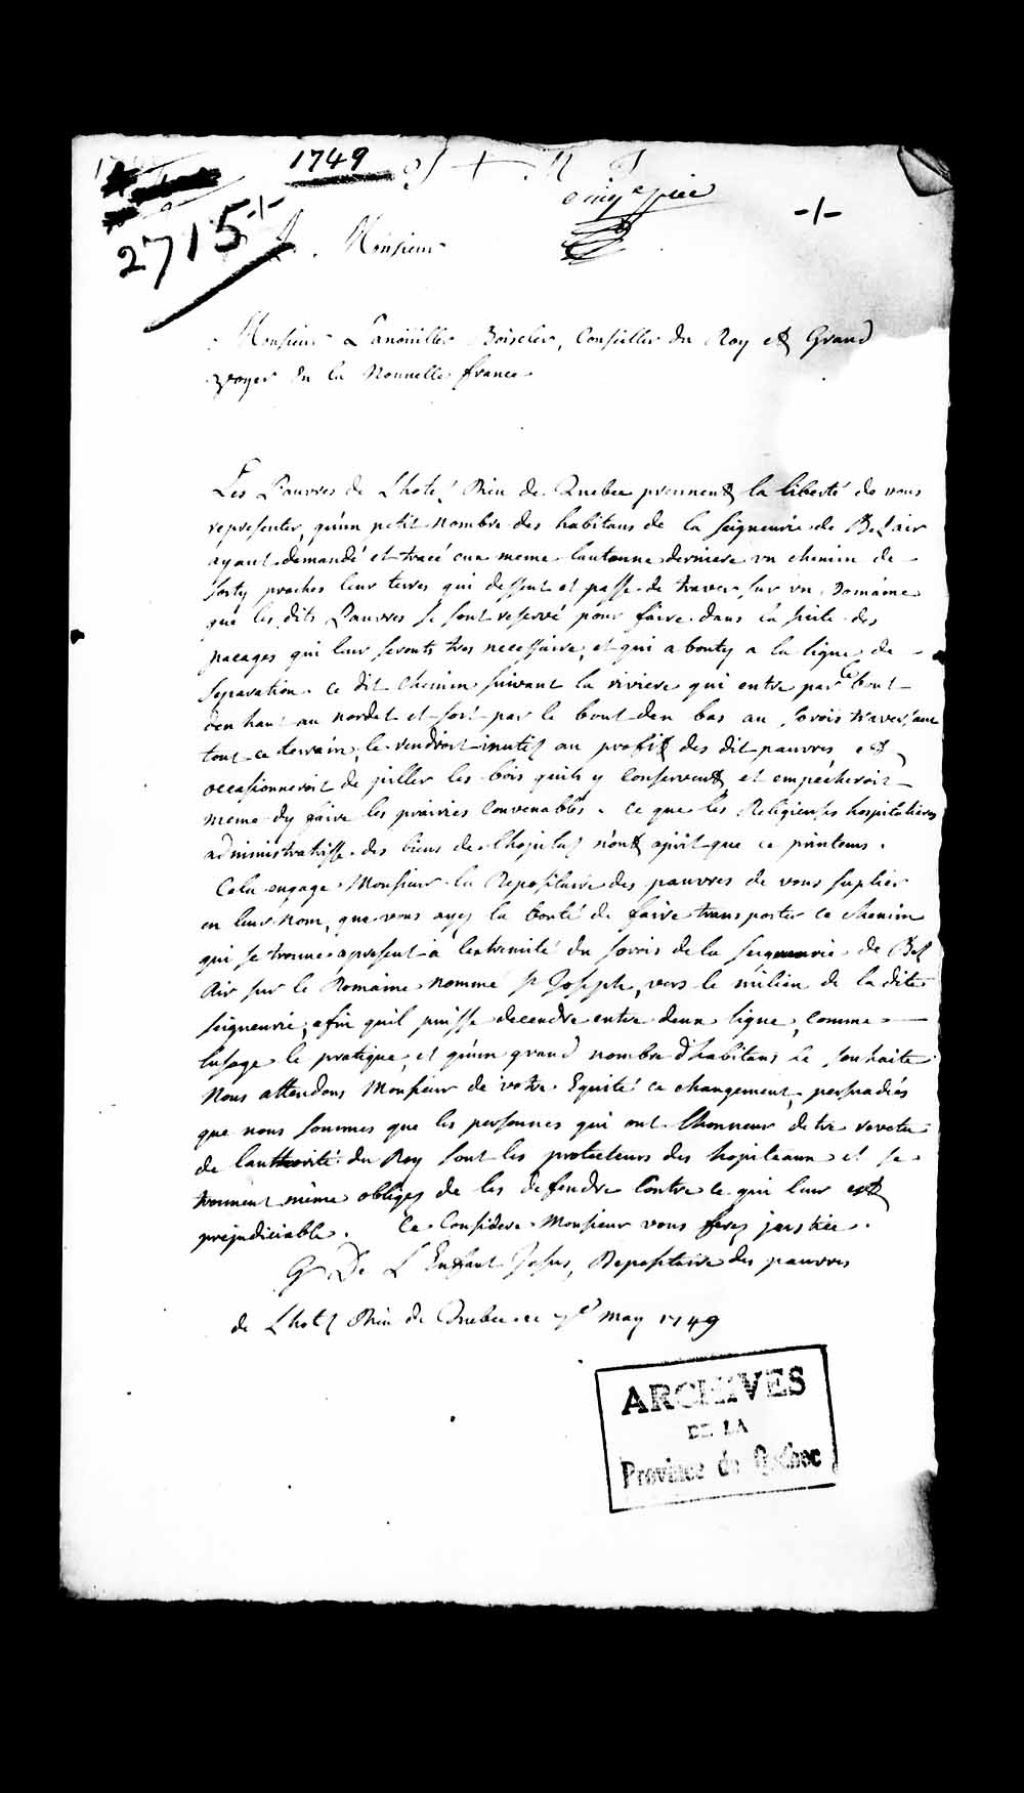 1749
2715
cinq.e piece
A. Monsieur
Monsieur Lanoüiller Boiscler, Conseiller du Roy et Grand
voyer en la Nouvelle france
Les Pauvres de Lhotel Dieu de Quebec prennent la liberté de vous
representer, qu'un petit nombre des habitans de la seigneurie de Bel air
ayant demandé et tracé eux meme lautonne derniere un chemin de
sorty proches leur terres qui dessent et passe de traver sur un Domaine
que les dits Pauvres se sont reservé pour faire dans la suite des
pacages qui leur seronts tres necessaire, et qui abouty a la ligne de
separation. ce dit chemin suivant la riviere qui entre par le bout
den haut au nordet et sort par le bout den bas au sorois traversant
tout ce terrain, le rendroit inutil au profit des dit pauvres, et
occasionneroit de piller les bois quils y conservent, et empecheroit
meme dy faire les prairies convenables. ce que les Religieuses hospitalieres
administratrisse des biens de lhopital n'ont aprit que ce printems.
Cela engage Monsieur la Depositaire des pauvres de vous suplier
en leur nom, que vous ayez la bonté de faire transporter ce chemin
qui se trouve apresent a lextremité du sorois de la seigneurie de Bel
Air sur le Domaine nommé St Joseph, vers le milieu de la dite
seigneurie, afin quil puisse decendre entre deux ligne, comme
lusage le pratique, et qu'un grand nombre d'habitans le souhaite
Nous attendons Monsieur de votre Equité ce changement, persuadées
que nous sommes que les personnes qui ont lhonneur detre revetu
de lauthorité du Roy sont les protecteurs des hopiteaux et se
trouvent même obligez de les defendre contre ce qui leur est
prejudiciable. Ce Consideré Monsieur vous ferez justice.
G De L'Enfant Jesus, Depositaire des pauvres
de Lhotel Dieu de Quebec ce 7e may 1749
ARCHIVES
DE LA
Province de Québec